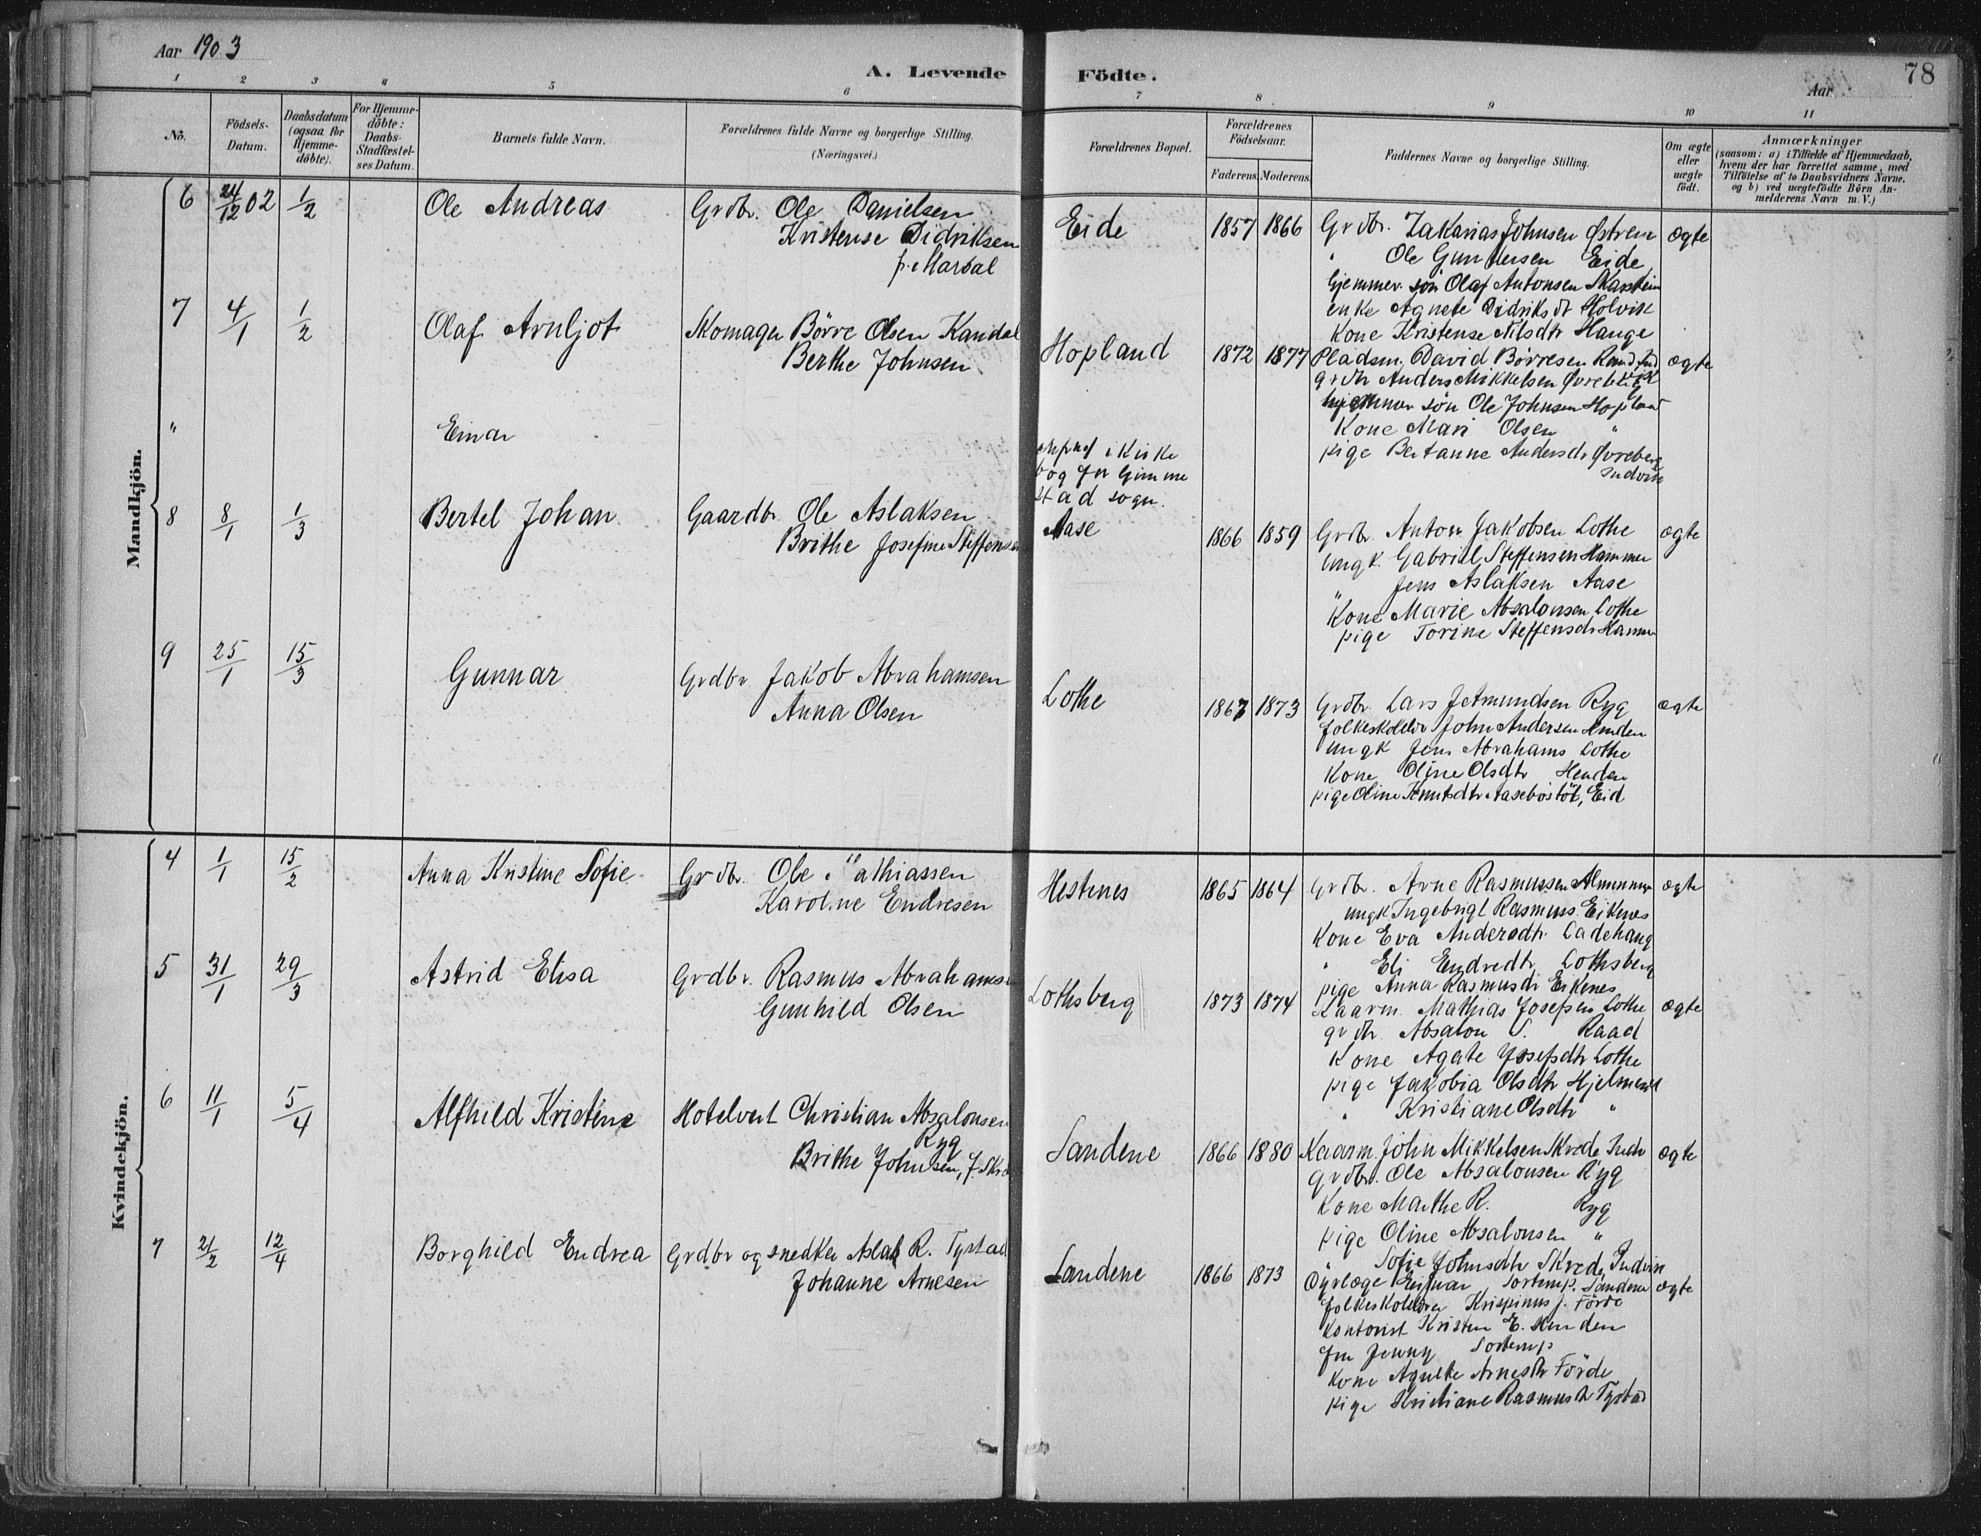 Aar 1903
A. Levende Födte.
78
Aar
1 2 3 4 5 6 7 8 9 10 11
No.
Födsels-Datum.
Daabsdatum (ogsaa for Hjemme-döbte).
For Hjemme-döbte: Daabs-Stadfæstel-ses Datum.
Barnets fulde Navn.
Forældrenes fulde Navne og borgerlige Stilling. (Næringsvei.)
Forældrenes Bopæl.
Forældrenes Födselsaar.
Faderens. Moderens.
Faddernes Navne og borgerlige Stilling.
Om ægte eller uægte födt.
Anmærkninger
(saasom: a) i Tilfælde af Hjemmedaab, hvem der har forrettet samme, med Tilföielse af to Daabsvidners Navne, og b) ved uægtefödte Börn An-melderens Navn m. V.)
Mandkjön.
6 24/12 02 1/2 Ole Andreas Grdbr. Ole Danielsen
Kristense Didriksen
Eide 1857 1866 Grdbr. Zakarias Johnsen Østrem ægte
" Ole Gundersen Eide
hjemmev. søn Olaf Antonsen Skarstein
enke Agnete Didriksdt Holvik
Kone Kristense Nilsdtr Hauge
7 4/1 1/2 Olaf Arnljot Skomager Börre Olsen Kandal
Berthe Johnsen
Hopland 1872 1877 Pladsm. David Börresen ægte
grdbr Anders Mikkelsen
hjemmev søn Ole Johnsen Hopland
Kone Mari Olsen "
pige Bertanne Andersdtr
Indvik
" Einar
i Kirke
bog for Gimme
stad sogn.
8 8/1 1/3 Bertel Johan Gaardbr. Ole Aslaksen
Brithe Josefine Steffensen
Aase 1866 1859 Grdbr. Anton Jakobsen Lothe ægte
Ungk. Gabriel Steffensen Hammer
" Jens Aslaksen Aase
Kone Marie Absalonsen Lothe
pige Torine Steffensdr Hammer
9 25/1 15/3 Gunnar Grdbr Jakob Abrahamsen
Anna Olsen
Lothe 1867 1873 Grdbr. Lars Jetmundsen Ryg ægte
John Andersen Henden
ungk Jens Abrahams Lothe
Kone Oline Olsdtr Henden
pige Oline Knutsdtr Aasebøstöl, Eid
Kvindekjön.
4 1/1 15/2 Anna Kristine Sofie Grdbr. Ole Mathiassen
Karoline Endresen
Hestenes 1865 1864 Grdbr. Arne Rasmussen ægte
ungk Ingebrigt Rasmus. Eikenes
Kone Eva Andersdtr. Ladehaug
" Eli Endredtr. Lothsberg
pige Anna Rasmusdr Eikenes
5 31/1 29/3 Astrid Elisa Grdbr. Rasmus Abrahamsen
Gunhild Olsen
Lothsberg 1873 1874 Kaarm. Mathias Josefsen Lothe ægte
grdbr. Absalon S. Raad
Kone Agate Josefsdtr Lothe
pige Jakobia Olsdtr Hjelmeset
" Kristiane Olsdtr "
6 11/1 5/4 Alfhild Kristine Hotelvert Christian Absalonsen
Ryg
Brithe Johnsen, f. Skrede
Sandene 1866 1880 Kaarm. John Mikkelsen Skrede Indv ægte
grdbr. Ole Absalonsen Ryg
Kone Marthe R. Ryg
pige Oline Absalonsen "
" Sofie Johnsdtr Skrede, Indvik
7 21/2 12/4 Borghild Endrea Grdbr og snedker Aslak R. Tystad
Johanne Arnesen
Sandene 1866 1873 Dyrlæge Sandene ægte
Krispinus J. Förde
Kontorist Kristen E. Henden
fru Jenny
Kone Agnethe Arnesdtr Förde
pige Kristiane Rasmusdtr Tystad